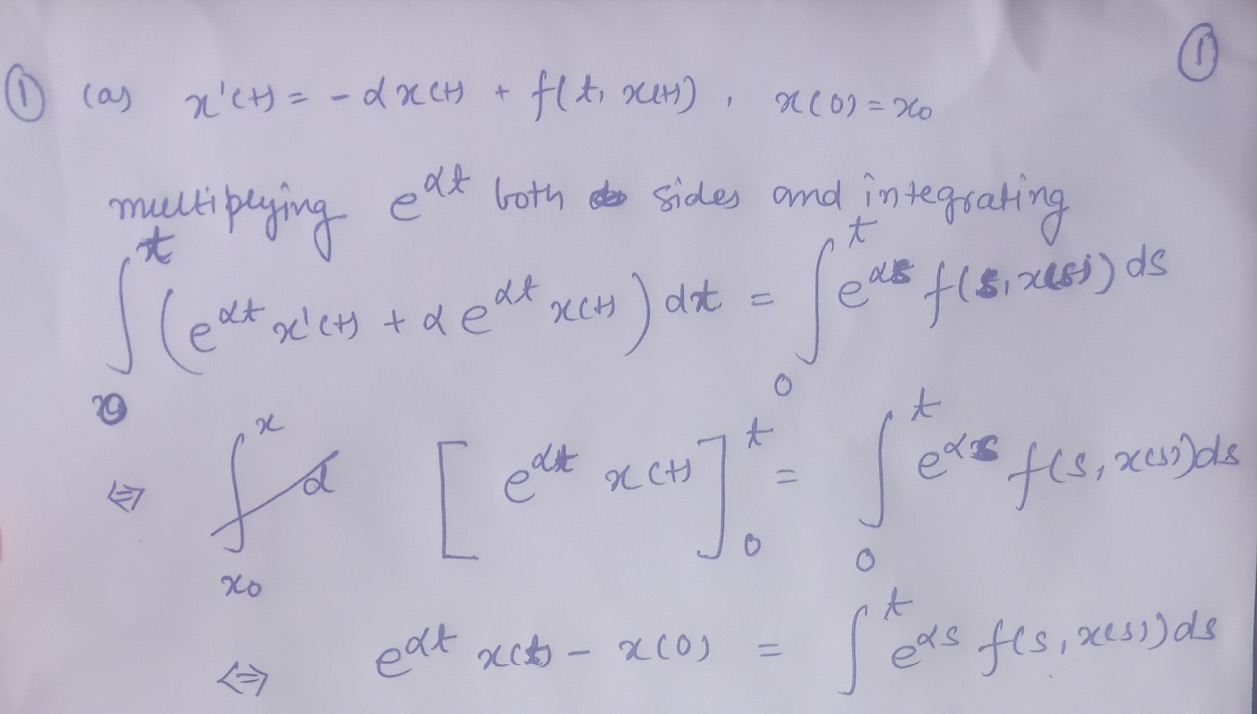 ①
① (a) x'(t) = - αx(t) + f(t, x(t)), x(0) = x₀
multiplying e^{αt} both sides and integrating
∫₀^t (e^{αt} x'(t) + α e^{αt} x(t)) dt = ∫₀^t e^{αs} f(s, x(s)) ds
⇔ [e^{αt} x(t)]₀^t = ∫₀^t e^{αs} f(s, x(s)) ds
⇔ e^{αt} x(t) - x(0) = ∫^t e^{αs} f(s, x(s)) ds